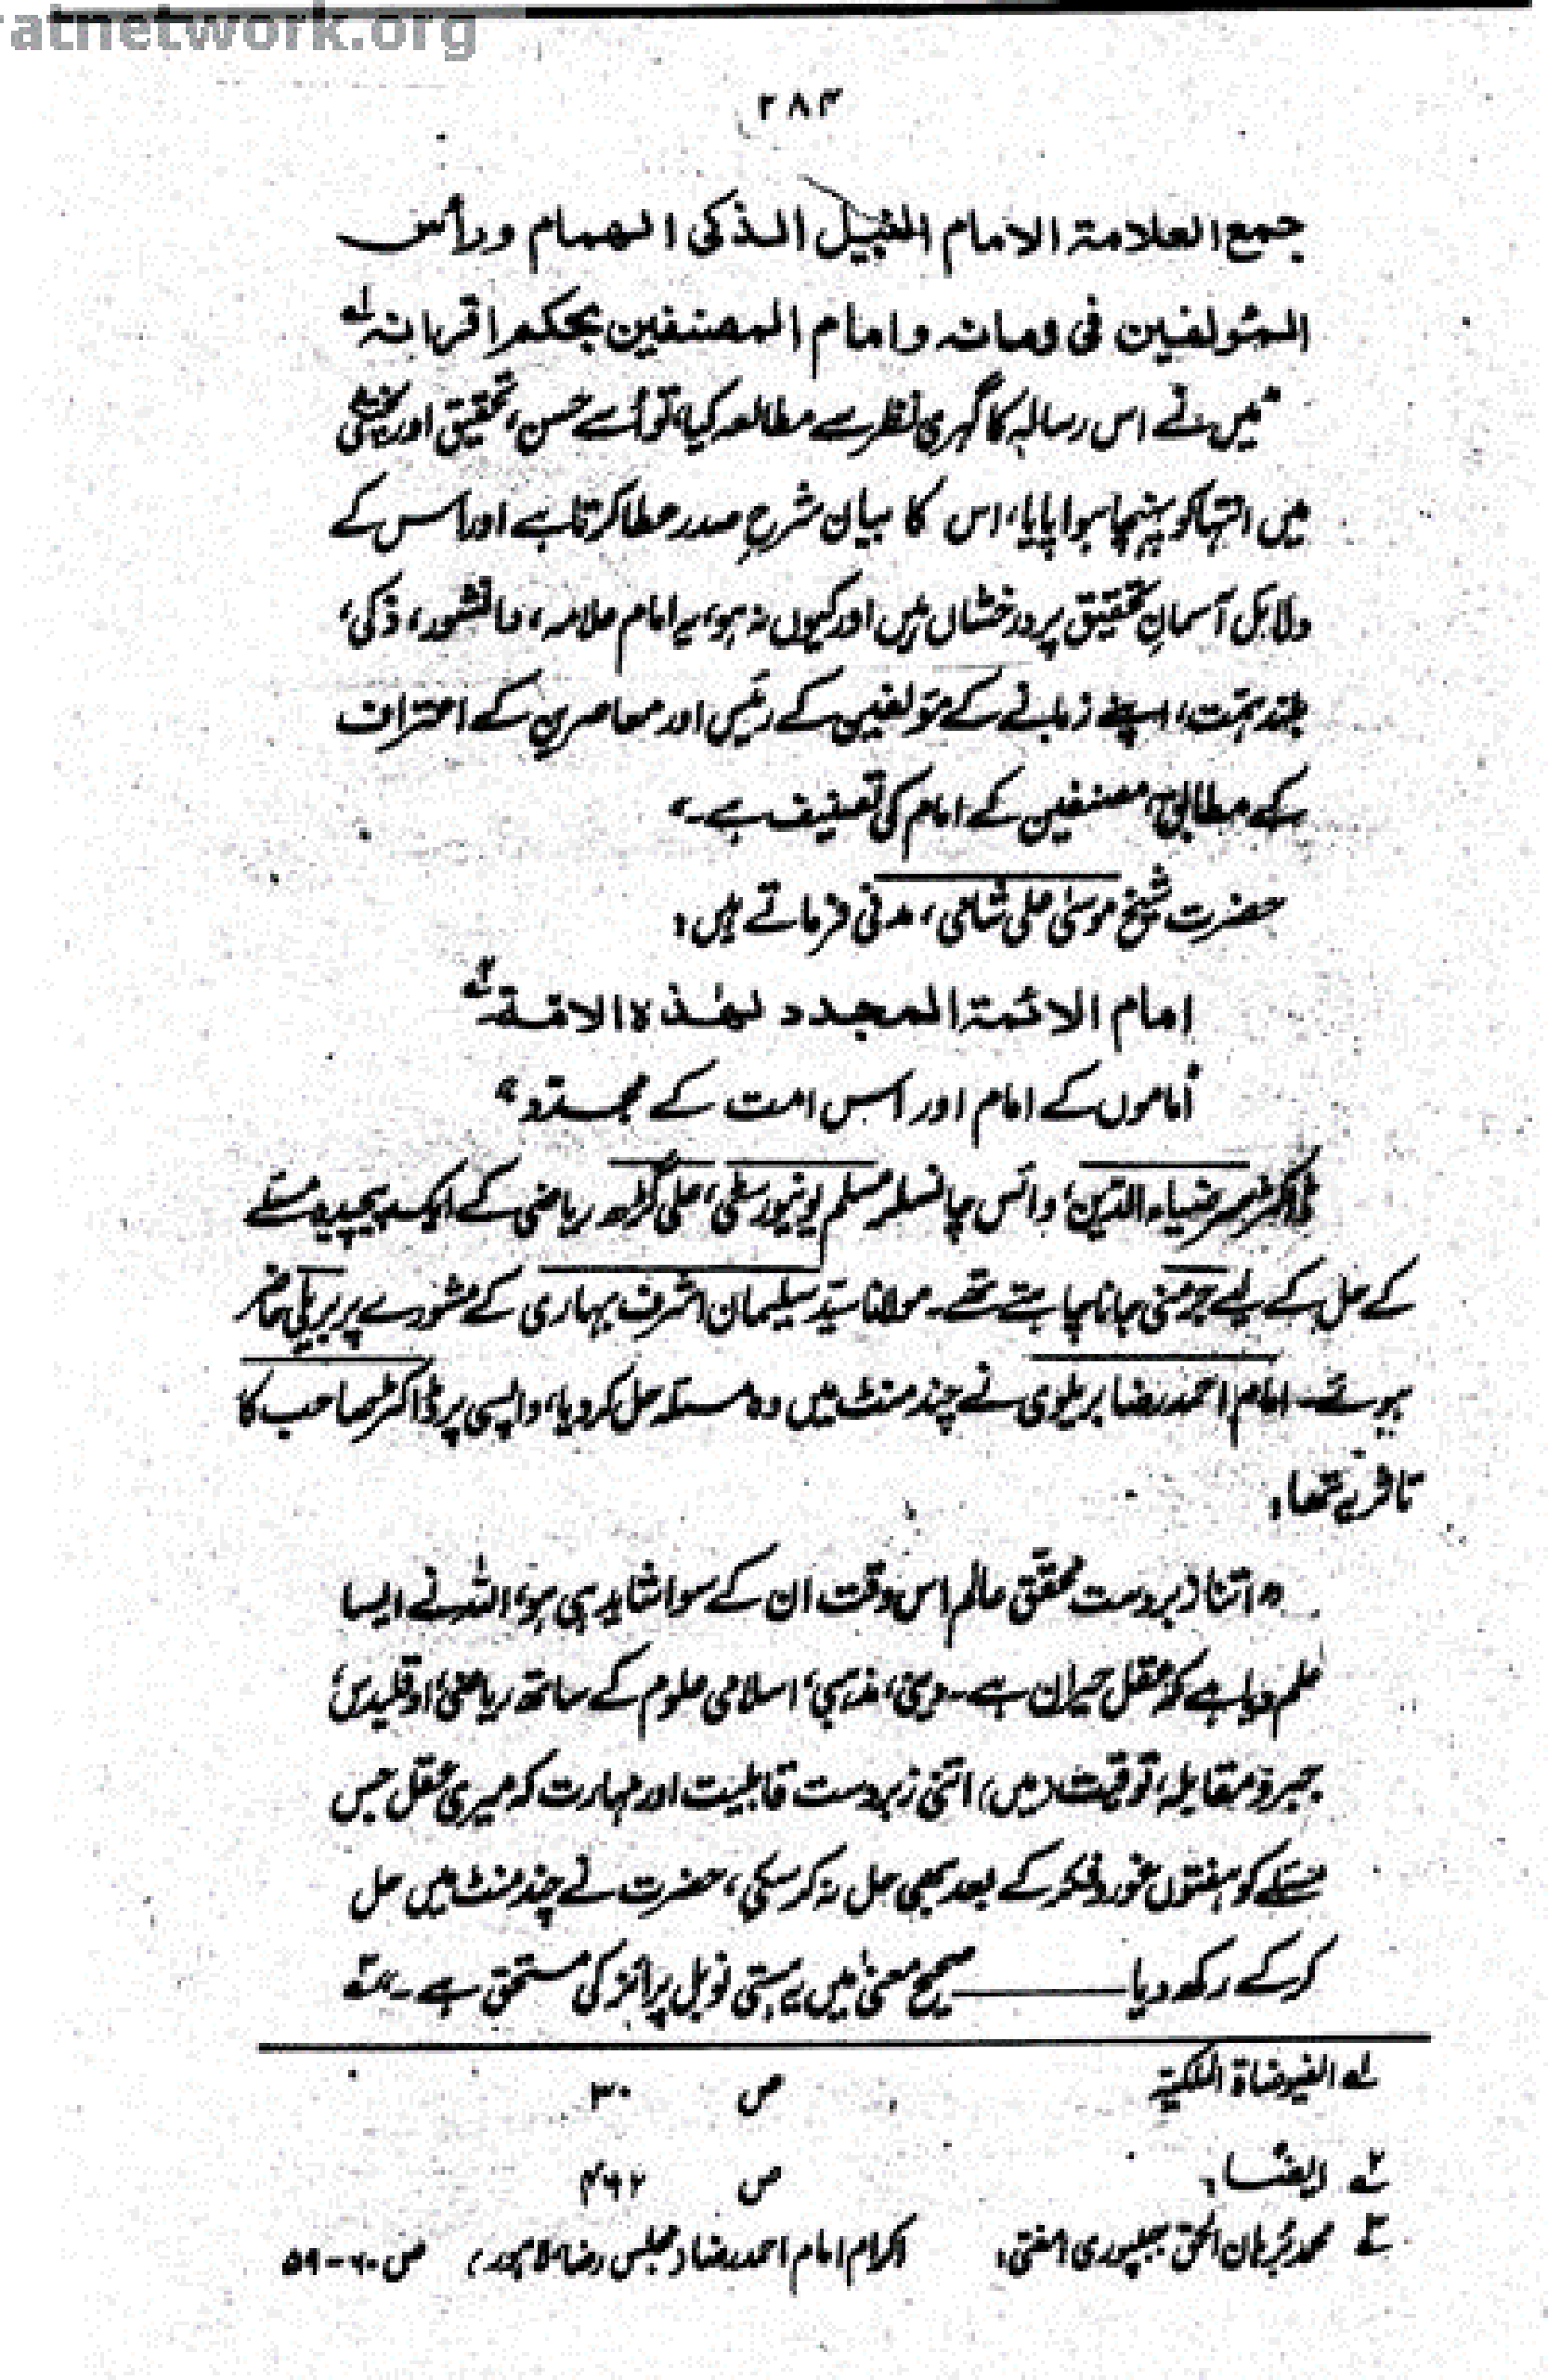 atnetwork.org
۲۸۴
جمع العلامة الامام النبيل الذكى الهمام ورأس
المؤلفين فى زمانہ وامام المصنفين بحكم اقرانہ لہ
"میں نے اس رسالہ کا گہری نظر سے مطالعہ کیا، تو اُسے حسن، تحقیق اور پختگی
میں انتہا کو پہنچا ہوا پایا، اس کا بیان شرحِ صدر عطا کرتا ہے اور اس کے
دلائل آسمانِ تحقیق پر درخشاں ہیں اور کیوں نہ ہو، یہ امام علامہ، دانشور، ذکی،
بلند ہمّت، اپنے زمانے کے مؤلفین کے رئیس اور معاصرین کے اعتراف
کے مطابق، مصنفین کے امام کی تصنیف ہے۔"
حضرت شیخ موسیٰ علی شامی، مدنی فرماتے ہیں:
امام الائمة المجدد لهٰذه الامة ۲ہ
"اماموں کے امام اور اس امت کے مجدّد"
ڈاکٹر سر ضیاء الدین، وائس چانسلر مسلم یونیورسٹی، علی گڑھ ریاضی کے ایک پیچیدہ مسئلے
کے حل کے لیے جرمنی جانا چاہتے تھے۔ مولانا سیّد سلیمان اشرف بہاری کے مشورے پر بریلی حاضر
ہوئے۔ امام احمد رضا بریلوی نے چند منٹ میں وہ مسئلہ حل کر دیا، واپسی پر ڈاکٹر صاحب کا
تاثر یہ تھا:
"اتنا زبردست محقّق عالم اس وقت ان کے سوا شاید ہی ہو، اللہ نے ایسا
علم دیا ہے کہ عقل حیران ہے۔ دینی، مذہبی، اسلامی علوم کے ساتھ ریاضی، اوقلیدس،
جبر و مقابلہ، توقیت (میں) اتنی زبردست قابلیت اور مہارت کہ میری عقل جس
مسئلے کو ہفتوں غور و فکر کے بعد بھی حل نہ کر سکی، حضرت نے چند منٹ میں حل
کر کے رکھ دیا ——— صحیح معنیٰ میں یہ ہستی نوبل پرائز کی مستحق ہے۔" ۳ہ
لہ الفیوضاۃ الملکیۃ ص ۳۰
۲ہ ایضاً: ص ۴۶۲
۳ہ محمد بُرہان الحق جبلپوری، مفتی: اکرام امام احمد رضا (مجلس رضا لاہور) ص ۶۰-۵۹